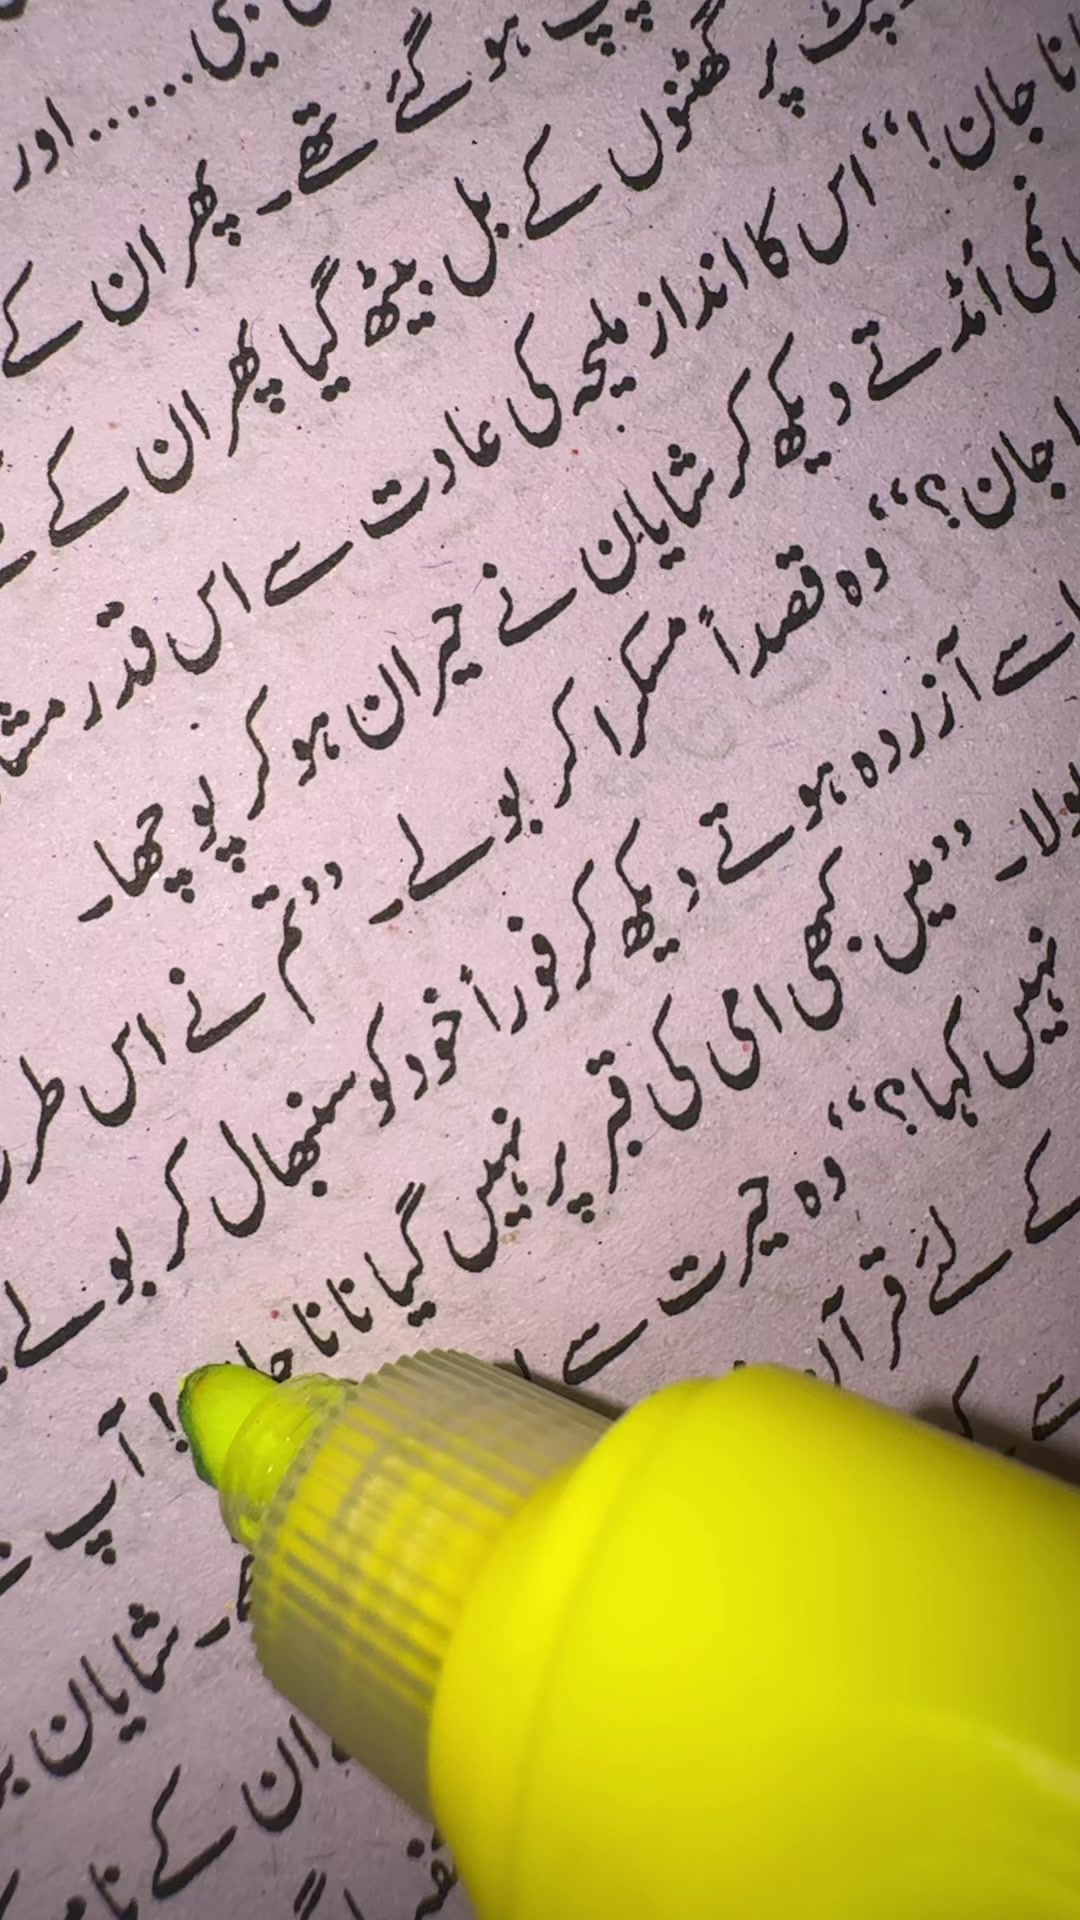 ہیں......اور
چپ ہو گئے تھے۔ پھر ان کے
پر گھٹنوں کے بل بیٹھ گیا پھر ان کے
نا جان!“ اس کا انداز ملیحہ کی عادت سے اس قدر
نمی اُمڈتے دیکھ کر شایان نے حیران ہو کر پوچھا۔
جان؟“ وہ قصداً مسکرا کر بولے۔ ”تم نے اس
سے آزردہ ہوتے دیکھ کر فوراً خود کو سنبھال کر بولے
بولا۔ ”میں کبھی امی کی قبر پر نہیں گیا نانا جان! آپ
نہیں کہا؟“ وہ حیرت سے
کے لئے قرآن
سے
۔ شایان
ان کے